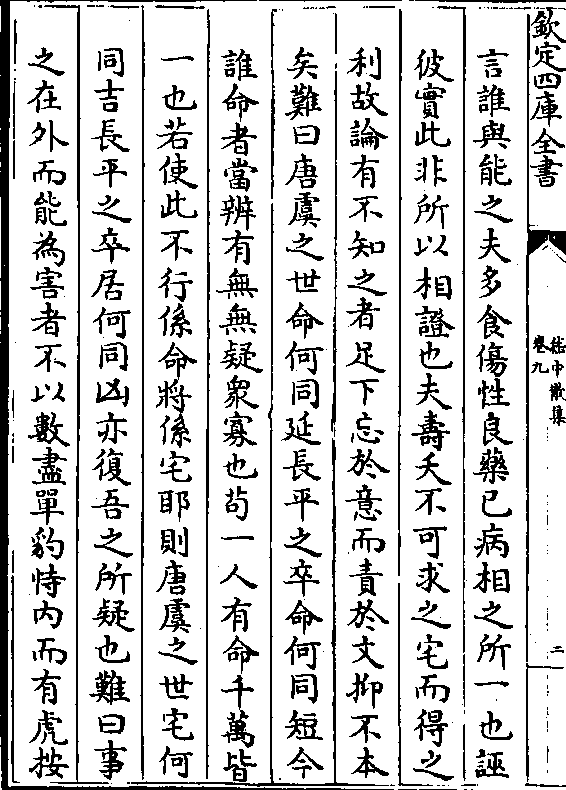 欽定四庫全書
嵇中散集
卷九
二
言誰與能之夫多食傷性良藥已病相之所一也誣
彼實此非所以相證也夫壽夭不可求之宅而得之
利故論有不知之者足下忘於意而責於文抑不本
矣難曰唐虞之世命何同延長平之卒命何同短今
誰命者當辨有無無疑衆寡也茍一人有命千萬皆
一也若使此不行係命將係宅耶則唐虞之世宅何
同吉長平之卒居何同凶亦復吾之所疑也難曰事
之在外而能為害者不以數盡單豹恃内而有虎按